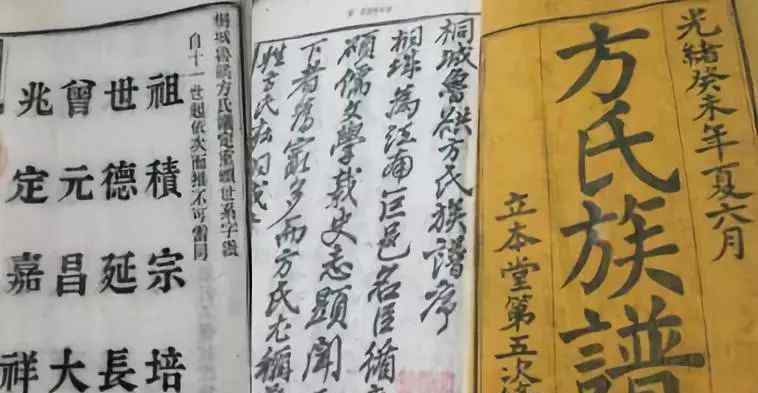 光緒癸未年夏六月
方氏族譜
立本堂第五次
桐城魯谼方氏族譜序
桐城為江南巨邑名臣循
碩儒文學載史志顯聞
下者舊家多而方氏尤稱
姓方氏在桐城
桐城魯谼方氏議定重編世系字派
自十一世起依次而推不可雷同
祖積宗培
世德延長
曾元昌大
兆定嘉祥